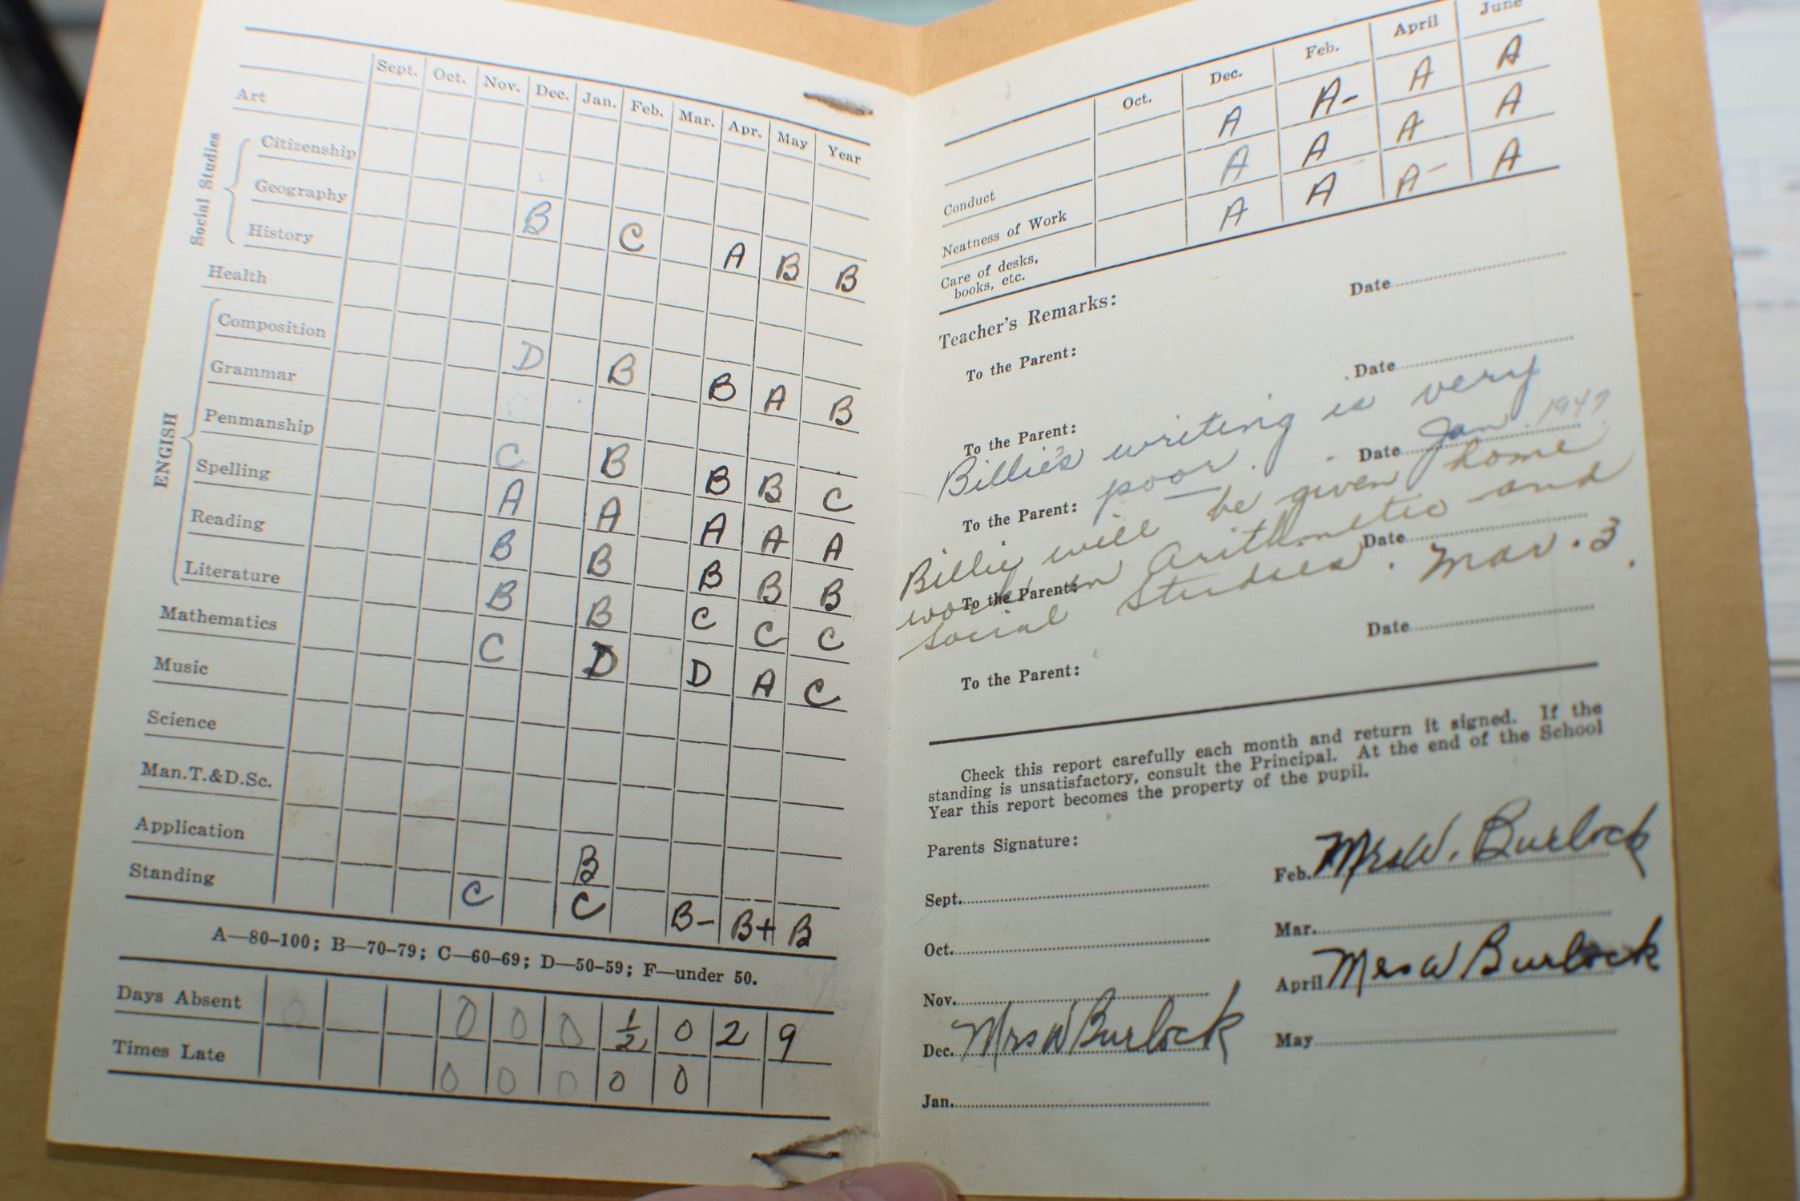 Sept. Oct. Nov. Dec. Jan. Feb. Mar. Apr. May Year
Art
Social Studies
Citizenship
Geography B C A B B
History
Health
ENGISH
Composition D B B A B
Grammar
Penmanship C B B B C
Spelling A A A A A
Reading B B B B B
Literature B B C C C
Mathematics C D D A C
Music
Science
Man.T.&D.Sc.
Application B
Standing C C B- B+ B
A—80-100; B—70-79; C—60-69; D—50-59; F—under 50.
Days Absent 0 0 0 0 1/2 0 2 9
Times Late 0 0 0 0 0
Oct. Dec. Feb. April June
Conduct A A- A A
Neatness of Work A A A A
Care of desks, books, etc. A A A- A
Teacher's Remarks:
Date
To the Parent:
Date
To the Parent:
Billie's writing is very
Date Jan. 1947
To the Parent: poor.
Billie will be given home
Date
To the Parent:
work in Arithmetic and
Social Studies. Mar. 3.
Date
To the Parent:
Check this report carefully each month and return it signed. If the
standing is unsatisfactory, consult the Principal. At the end of the School
Year this report becomes the property of the pupil.
Parents Signature:
Sept.
Oct.
Nov.
Dec. Mrs W Burlock
Jan.
Feb. Mrs W. Burlock
Mar.
April Mrs W Burlock
May